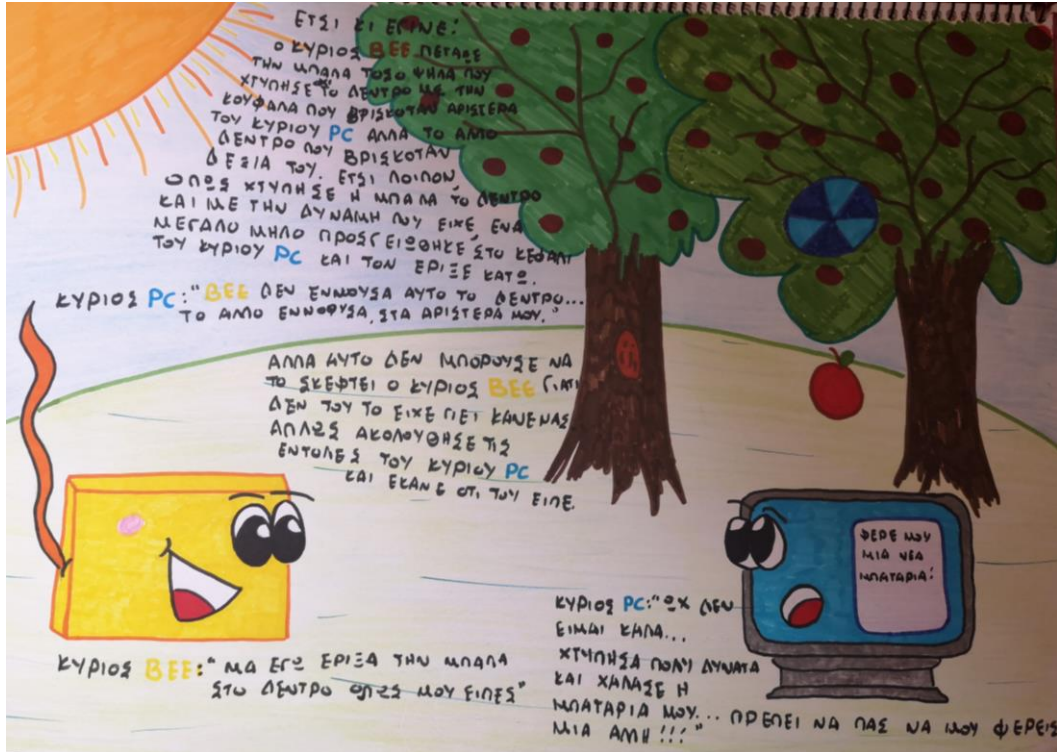 ΕΤΣΙ ΚΙ ΕΓΙΝΕ:
Ο ΚΥΡΙΟΣ BEE ΠΕΤΑΞΕ
ΤΗΝ ΜΠΑΛΑ ΤΟΣΟ ΨΗΛΑ ΠΟΥ
ΧΤΥΠΗΣΕ ΤΟ ΔΕΝΤΡΟ ΜΕ ΤΗΝ
ΚΟΥΦΑΛΑ ΠΟΥ ΒΡΙΣΚΟΤΑΝ ΑΡΙΣΤΕΡΑ
ΤΟΥ ΚΥΡΙΟΥ PC ΑΛΛΑ ΤΟ ΑΛΛΟ
ΔΕΝΤΡΟ ΠΟΥ ΒΡΙΣΚΟΤΑΝ
ΔΕΞΙΑ ΤΟΥ. ΕΤΣΙ ΛΟΙΠΟΝ,
ΟΠΩΣ ΧΤΥΠΗΣΕ Η ΜΠΑΛΑ ΤΟ ΔΕΝΤΡΟ
ΚΑΙ ΜΕ ΤΗΝ ΔΥΝΑΜΗ ΠΟΥ ΕΙΧΕ ΕΝΑ
ΜΕΓΑΛΟ ΜΗΛΟ ΠΡΟΣΓΕΙΩΘΗΚΕ ΣΤΟ ΚΕΦΑΛΙ
ΤΟΥ ΚΥΡΙΟΥ PC ΚΑΙ ΤΟΝ ΕΡΙΞΕ ΚΑΤΩ.
ΚΥΡΙΟΣ PC:"BEE ΔΕΝ ΕΝΝΟΥΣΑ ΑΥΤΟ ΤΟ ΔΕΝΤΡΟ...
ΤΟ ΑΛΛΟ ΕΝΝΟΟΥΣΑ, ΣΤΑ ΑΡΙΣΤΕΡΑ ΜΟΥ."
ΑΛΛΑ ΑΥΤΟ ΔΕΝ ΜΠΟΡΟΥΣΕ ΝΑ
ΤΟ ΣΚΕΦΤΕΙ Ο ΚΥΡΙΟΣ BEE ΓΙΑΤΙ
ΔΕΝ ΤΟΥ ΤΟ ΕΙΧΕ ΠΕΙ ΚΑΝΕΝΑΣ,
ΑΠΛΩΣ ΑΚΟΛΟΥΘΗΣΕ ΤΙΣ
ΕΝΤΟΛΕΣ ΤΟΥ ΚΥΡΙΟΥ PC
ΚΑΙ ΕΚΑΝΕ ΟΤΙ ΤΟΥ ΕΙΠΕ.
ΦΕΡΕ ΜΟΥ
ΜΙΑ ΝΕΑ
ΜΠΑΤΑΡΙΑ!
ΚΥΡΙΟΣ BEE:"ΜΑ ΕΓΩ ΕΡΙΞΑ ΤΗΝ ΜΠΑΛΑ
ΣΤΟ ΔΕΝΤΡΟ ΟΠΩΣ ΜΟΥ ΕΙΠΕΣ"
ΚΥΡΙΟΣ PC:"ΩΧ ΔΕΝ
ΕΙΜΑΙ ΚΑΛΑ...
ΧΤΥΠΗΣΑ ΠΟΛΥ ΔΥΝΑΤΑ
ΚΑΙ ΧΑΛΑΣΕ Η
ΜΠΑΤΑΡΙΑ ΜΟΥ... ΠΡΕΠΕΙ ΝΑ ΠΑΣ ΝΑ ΜΟΥ ΦΕΡΕΙΣ
ΜΙΑ ΑΛΛΗ!!!"